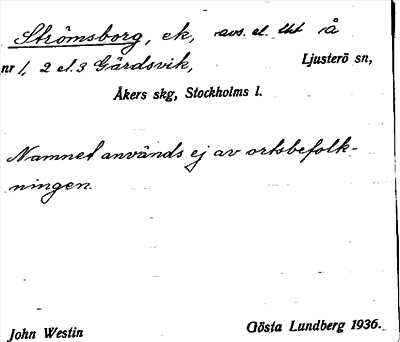 Strömsborg, ek, avs. el. tht å
nr 1, 2 el. 3 Gärdsvik, Ljusterö sn,
Åkers skg, Stockholms l.
Namnet används ej av ortsbefolk-
ningen.
John Westin Gösta Lundberg 1936.